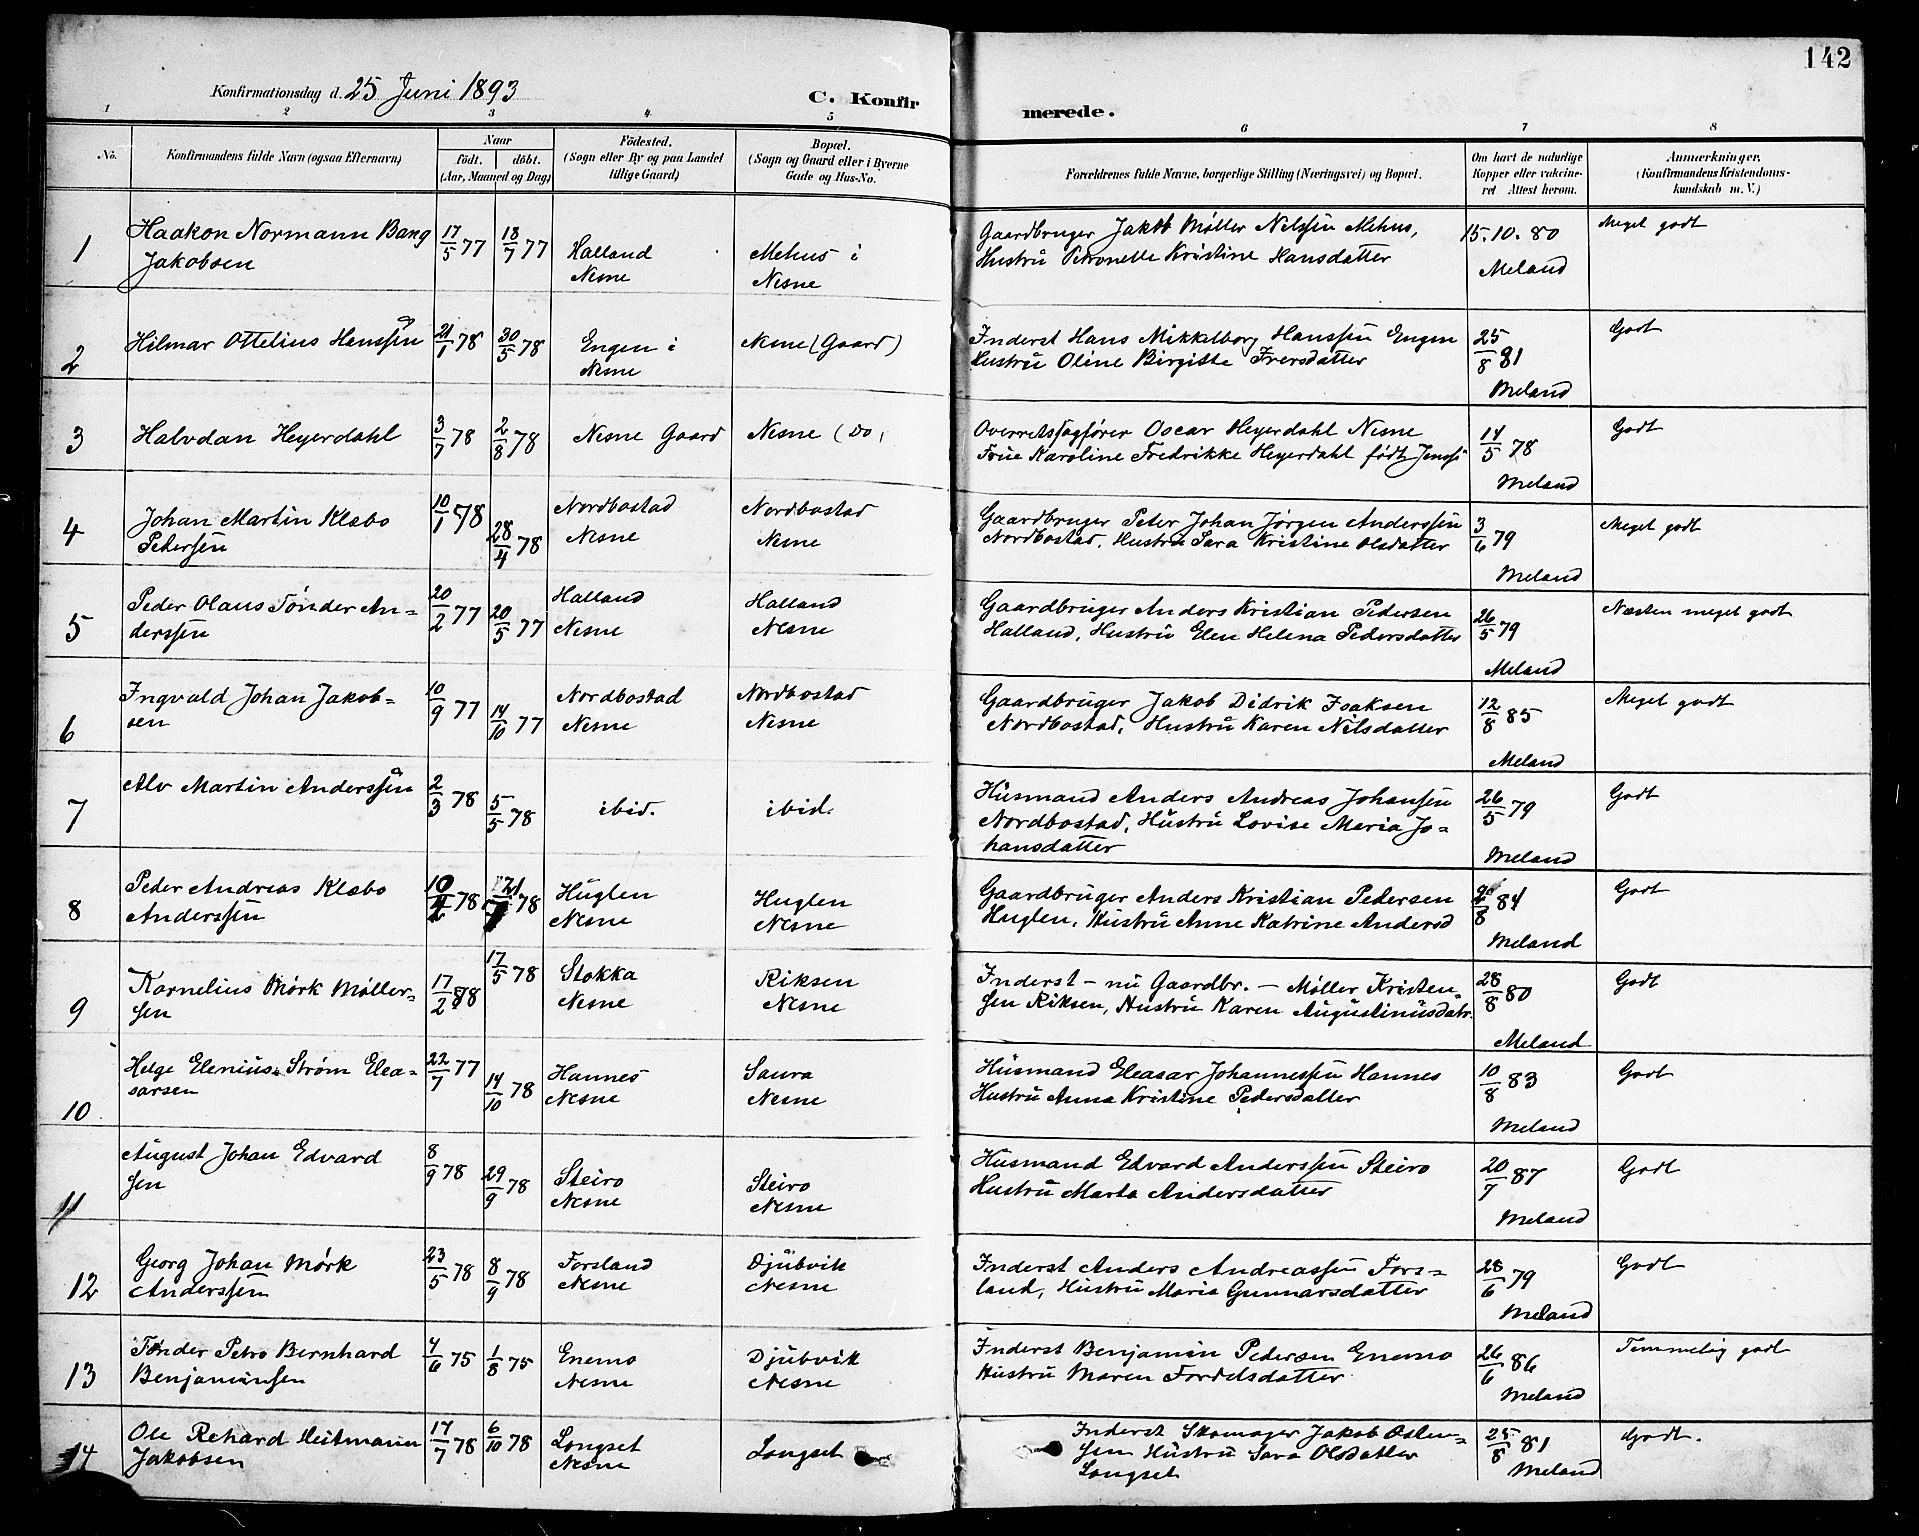 142
Konfirmationsdag d. 25 Juni 1893
C. Konfirmerede.
1 2 3 4. 5 6 7 8
No.
Konfirmandens fulde Navn (ogsaa Efternavn)
Naar
födt. döbt.
(Aar, Maaned og Dag)
Födested.
(Sogn eller By og paa Landet
tillige Gaard)
Bopæl.
(Sogn og Gaard eller i Byerne
Gade og Hus-No.
Forældrenes fulde Navne, borgerlige Stilling (Næringsvei) og Bopæl.
Om havt de naturlige
Kopper eller vakcine-
ret Attest herom.
Anmærkninger.
(Konfirmandens Kristendoms-
kundskab m. V.)
1 Haakon Normann Bang 17/5 77 18/7 77 Halland Mehus i Gaardbruger Jakob Møller Nelssen Mehus, 15.10.80 Meget godt
Jakobsen Nesne Nesne Hustru Petronelle Kristine Hansdatter Meland
2 Hilmar Ottelius Hanssen 21/1 78 30/5 78 Engen i Nesne (Gaard) Inderst Hans Mikkelborg Hanssen Engen 25/8 81 Godt
Nesne Hustru Oline Birgitte Iversdatter Meland
3 Halvdan Heyerdahl 3/7 78 2/8 78 Nesne Gaard Nesne (Do, Overretssagfører Oscar Heyerdahl Nesne 14/5 78 Godt
Frue Karoline Fredrikke Heyerdahl født Meland
4 Johan Martin Klæbo 10/1 78 28/4 78 Nordbostad Nordbostad Gaardbruger Peter Johan Jørgen Anderssen 3/6 79 Meget godt
Pedersen Nesne Nesne Nordbostad, Hustru Sara Kristine Olsdatter Meland
5 Peder Olaus Tønder An- 20/2 77 20/5 77 Halland Halland Gaardbruger Anders Kristian Pedersen 26/5 79 Næsten meget godt
derssen Nesne Nesne Halland, Hustru Elen Helena Pedersdatter Meland
6 Ingvald Johan Jakob- 10/9 77 14/10 77 Nordbostad Nordbostad Gaardbruger Jakob Didrik Isaksen 12/8 85 Meget godt
sen Nesne Nesne Nordbostad, Hustru Karen Nilsdatter Meland
7 Alv Martin Anderssen 2/3 78 5/5 78 ibid. ibid. Husmand Anders Andreas Johansen 26/5 79 Godt
Nordbostad, Hustru Lovise Maria Jo-
hansdatter Meland
8 Peder Andreas Klæbo 78 78 Huglen Huglen Gaardbruger Anders Kristian Pedersen 84 Godt
Anderssen Nesne Nesne Huglen, Hustru Anne Katrine Andersd Meland
9 Kornelius Mørk Møller- 17/2 78 17/5 78 Stokka Riksen Inderst – nu Gaardbr. – Møller Kristen- 28/8 80 Godt
sen Nesne Nesne sen Riksen, Hustru Karen Augustinusdatr. Meland
10 Helge Elenius Strøm Elea- 22/7 77 14/10 78 Hannes Saura Husmand Eleasar Johannessen Hannes 10/8 83 Godt
sarsen Nesne Nesne Hustru Anna Kristine Pedersdatter Meland
11 August Johan Edvard 8/9 78 29/9 78 Steiro Steiro Husmand Edvard Anderssen Steiro 20/7 87 Godt
sen Nesne Nesne Hustru Marta Andersdatter Meland
12 Georg Johan Mørk 23/5 78 8/9 78 Forsland Djubvik Inderst Anders Andreassen Fors- 28/6 79 Godt
Anderssen Nesne Nesne land, Hustru Maria Gunnarsdatter Meland
13 Tønder Petro Bernhard 4/6 75 1/8 75 Enemo Djubvik Inderst Benjamin Pedersen Enemo 26/6 86 Temmelig godt
Benjaminsen Nesne Nesne Hustru Maren Fordelsdatter Meland
14 Ole Rekard Heitmann 17/7 78 6/10 78 Longset Longset Inderst Skomager Jakob Osten- 25/8 81 Godt.
Jakobsen Nesne sen Hustru Sara Olsdatter Meland
Longset